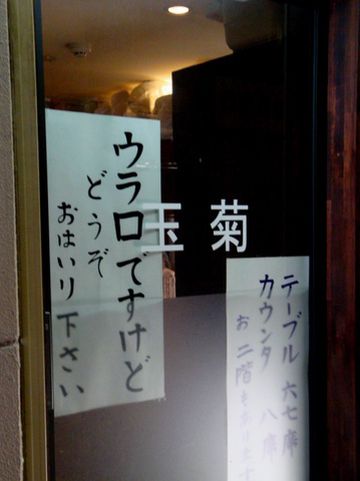 ウラロですけど
どうぞ
おはいり下さい
玉菊
テーブル 六七席
カウンタ 八席
お二階もあります